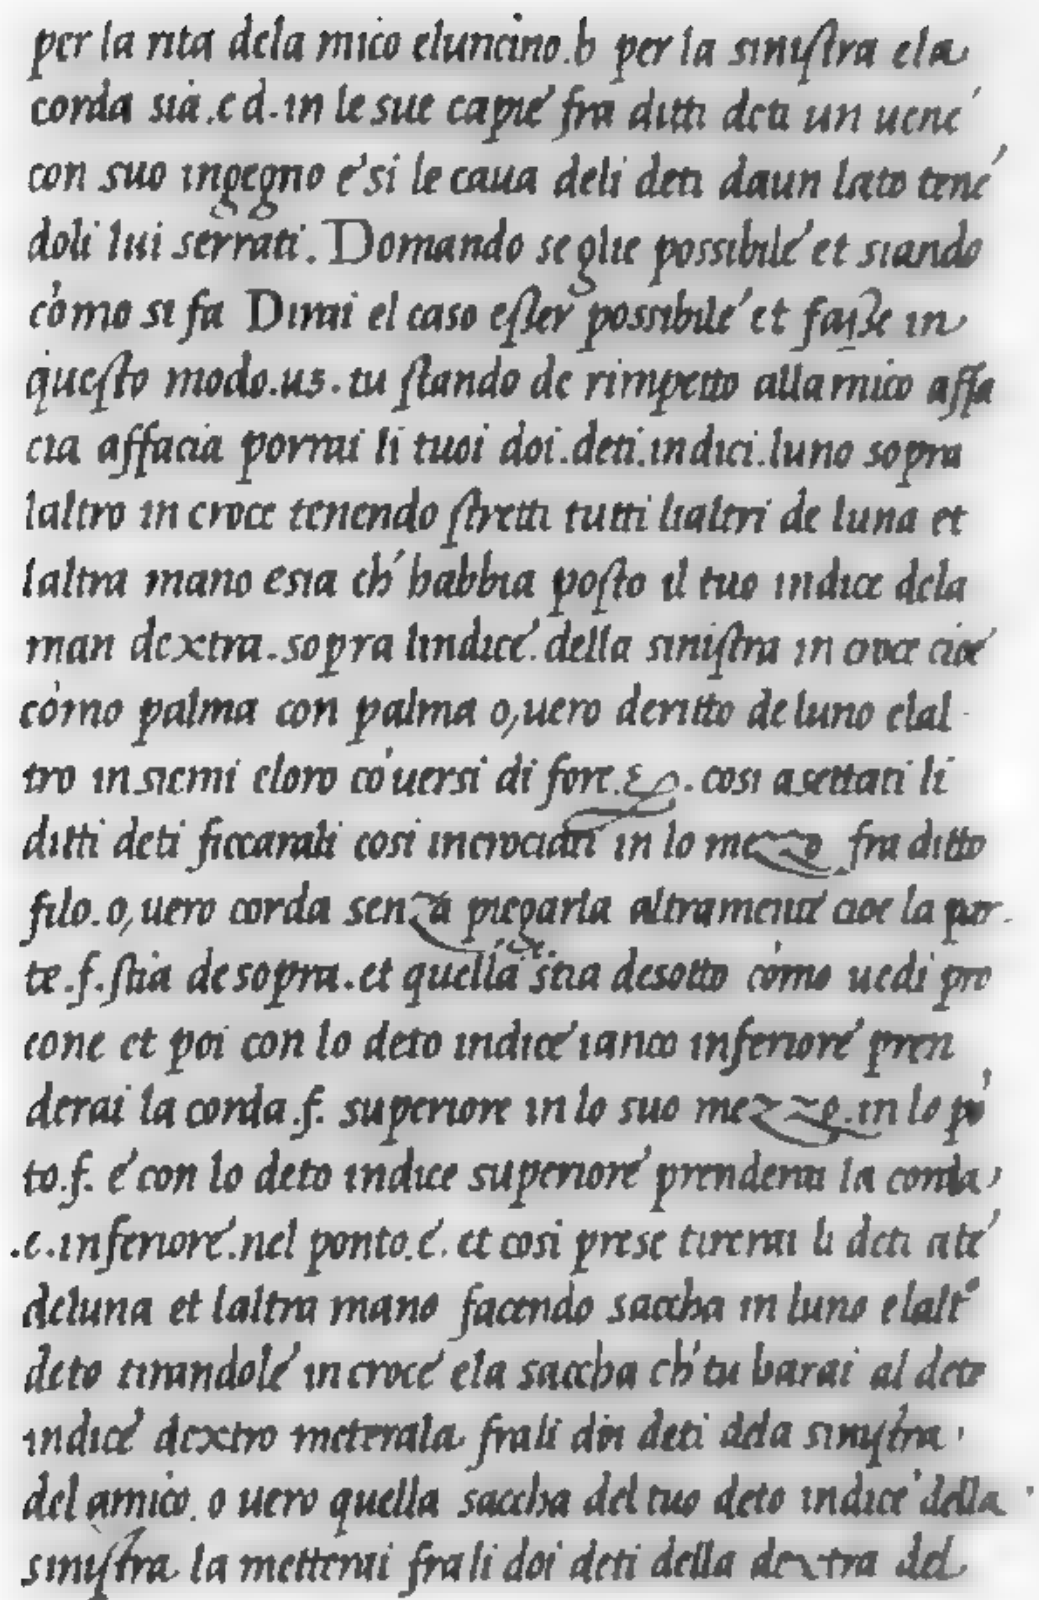 per la rita dela mico eluncino.b per la sinistra ela
corda sia.c d.in le sue capie fra ditti deti un uene
con suo ingegno e si le caua deli deti daun lato tené
doli lui serrati. Domando se glie possibile et siando
cómo si fa Dirai el caso esser possibile et fasse in
questo modo.u3.tu stando de rimpetto allamico affa
cia affacia porrai li tuoi doi.deti.indici.luno sopra
laltro in croce tenendo stretti tutti lialtri de luna et
laltra mano esia ch' habbia posto il tuo indice dela
man dextra.sopra lindice della sinistra in croce cioe
cómo palma con palma o,uero deritto de luno elal
tro insiemi eloro có uersi di fore. &. cosi asettati li
ditti deti ficcarali cosi incrociati in lo mezzo fra ditto
filo.o,uero corda senza piegarla altramente cioe la par
te.f.stia de sopra.et quella .e. stia desotto cómo uedi pro
cone et poi con lo deto indice ianco inferiore pren
derai la corda.f. superiore in lo suo mezzo.in lo pó
to.f. e con lo deto indice superiore prenderai la corda
.e.inferiore.nel ponto.e. et cosi prese tirerai li deti ate
deluna et laltra mano facendo saccha in luno elaltº
deto tirandole in croce ela saccha ch' tu harai al deto
indice dextro meterala frali doi deti dela sinistra
del amico. o uero quella saccha del tuo deto indice della
sinistra la metterai frali doi deti della dextra del